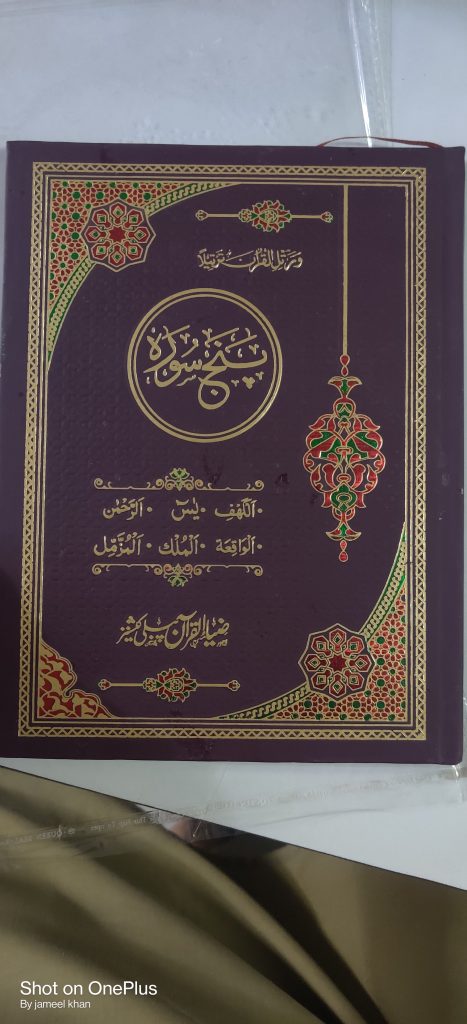 ورتل القرآن ترتیلاً
پنج سورہ
الکهف · یٰسٓ · الرَّحْمٰن
الواقعة · الملک · المزّمّل
ضیاء القرآن پبلی کیشنز
Shot on OnePlus
By jameel khan